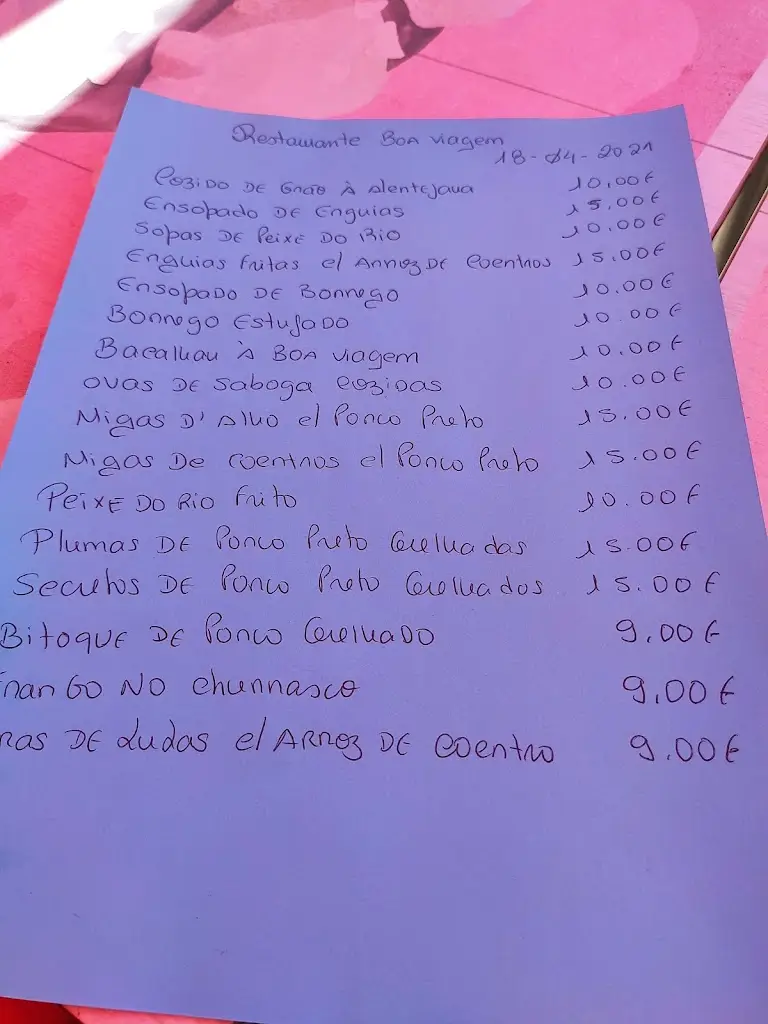 Restaurante Boa viagem
18-04-2021
Cozido de Grão à Alentejana 10,00€
Ensopado de Enguias 15.00€
Sopas de Peixe do Rio 10.00€
Enguias fritas c/ Arroz de Coentros 15.00€
Ensopado de Borrego 10.00€
Borrego Estufado 10.00€
Bacalhau à Boa viagem 10.00€
Ovas de Saboga Cozidas 10.00€
Migas d'Alho c/ Porco Preto 15.00€
Migas de Coentros c/ Porco Preto 15.00€
Peixe do Rio frito 10.00€
Plumas de Porco Preto Grelhadas 15.00€
Secretos de Porco Preto Grelhados 15.00€
Bitoque de Porco Grelhado 9,00€
Frango no churrasco 9,00€
ras de Ludas c/ Arroz de Coentro 9.00€